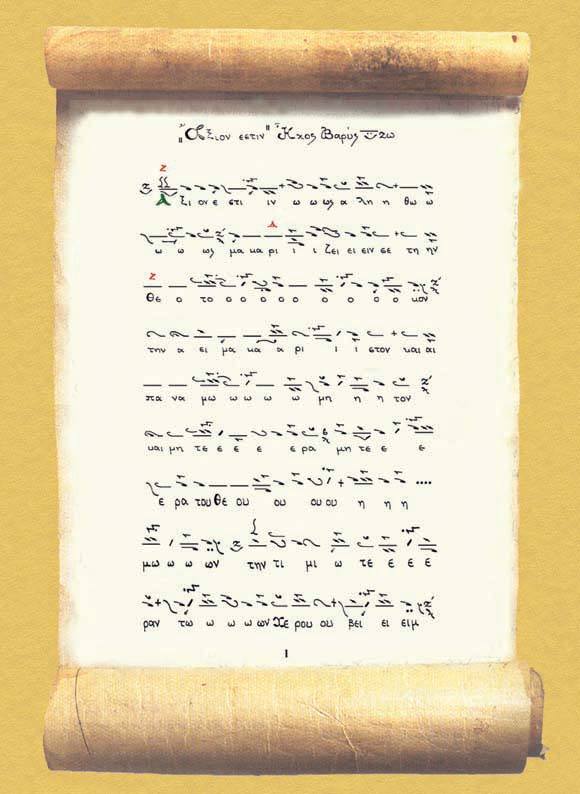 "Ἄξιον εστιν" Ἦχος Βαρύς Ζω
Ζ
Ἀ ξι ον ε στι ιν ω ω ως α λη η θω ω
ω ω ως μα κα ρι ι ι ζει ει ειν σε τη ην
Ζ
Θε ο το ο ο ο ο ο ο ο ο ο κον
την α ει μα κα α ρι ι ι στον και αι
πα να μω ω ω ω ω μη η η τον
και μη τε ε ε ε ε ρα μη τε ε ε ε
ε ρα του Θε ου ου ου ου ου η η η
μω ω ω ων την τι μι ω τε ε ε ε
ραν τω ω ω ω ων Χε ρου ου βει ει ειμ
1